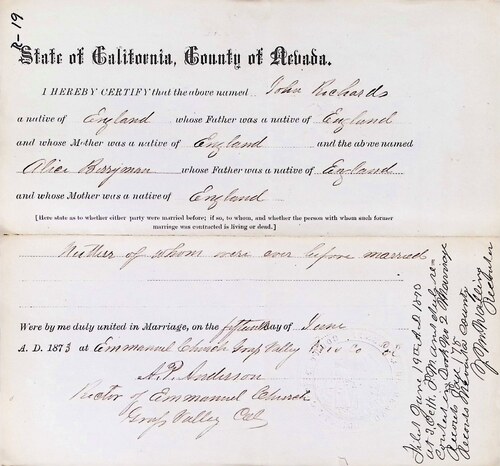 R-19
State of California, County of Nevada.
I HEREBY CERTIFY that the above named John Richards
a native of England whose Father was a native of England
and whose Mother was a native of England and the above named
Alice Berryman whose Father was a native of England
and whose Mother was a native of England
[Here state as to whether either party were married before; if so, to whom, and whether the person with whom such former
marriage was contracted is living or dead.]
Neither of whom were ever before married
Were by me duly united in Marriage, on the fifteenth day of June
A. D. 1873 at Emmanuel Church Grass Valley Nev Co Cal
A. P. Anderson
Rector of Emmanuel Church
Grass Valley Cal
Filed June 19th A.D. 1873
at 3 P.M. and duly re-
corded in Book No 2 Marriage
Records Page 178
Records Nevada County
Recorder